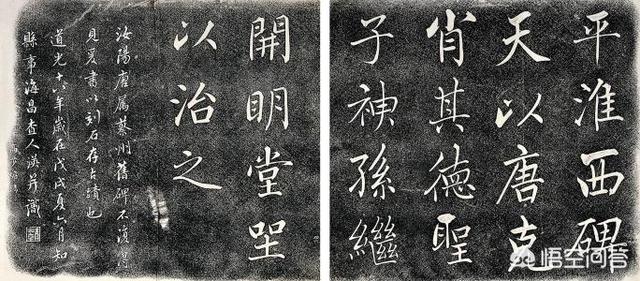 平淮西碑
天以唐克
肖其德聖
子神孫繼
開明堂坐
以治之
汝陽唐屬蔡州舊碑不復得
見爰書以刻石存古蹟也
道光十八年歲在戊戌夏六月知
縣事海昌查人渶并識
悟空问答